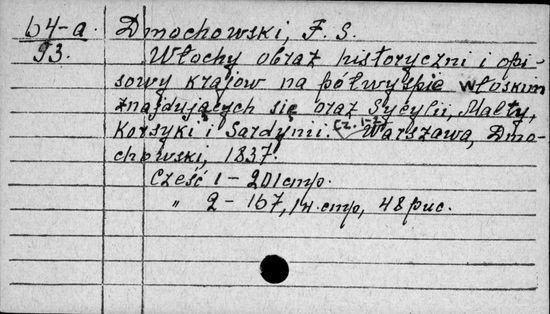 64-а Dmochowski, F. S.
93.
Włochy obraz historyczni i opi-
sowy krajów na półwyspie włoskim
znajdujących się oraz Sycylii, Malty,
Korsyki i Sardynii. Cz. 1-2. Warszawa, Dmo-
chowski, 1837.
Cześć 1 - 201 стр.
" 2 - 167, 1 н. стр, 48 рис.